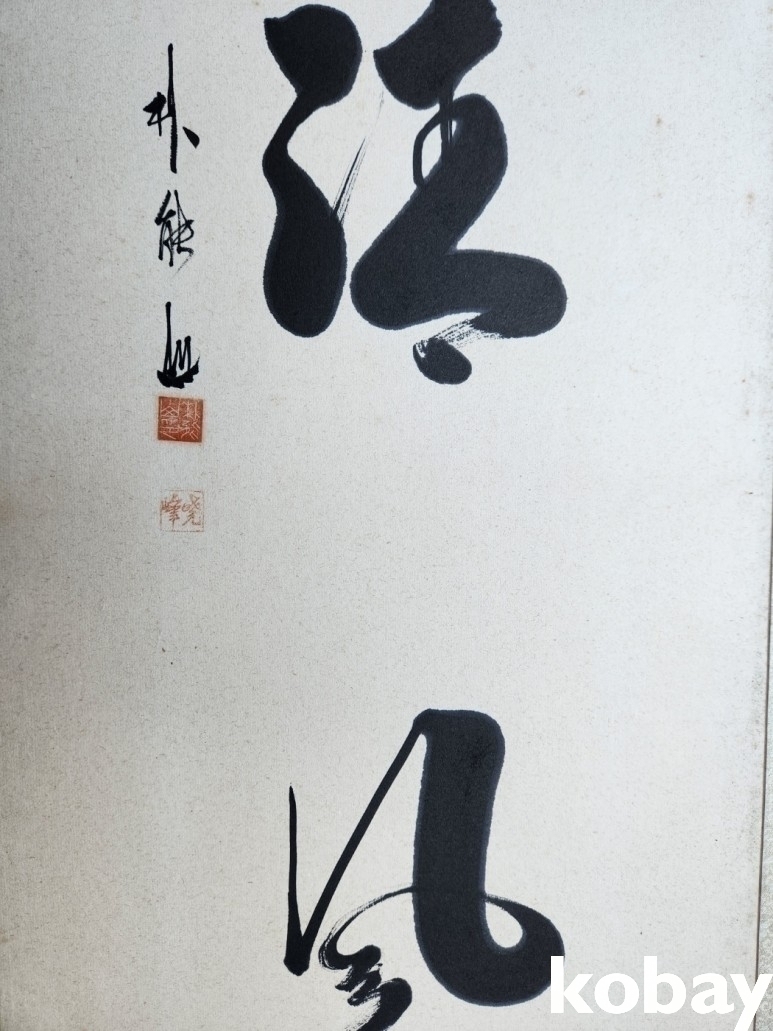 清風
朴能
曉峰
kobay